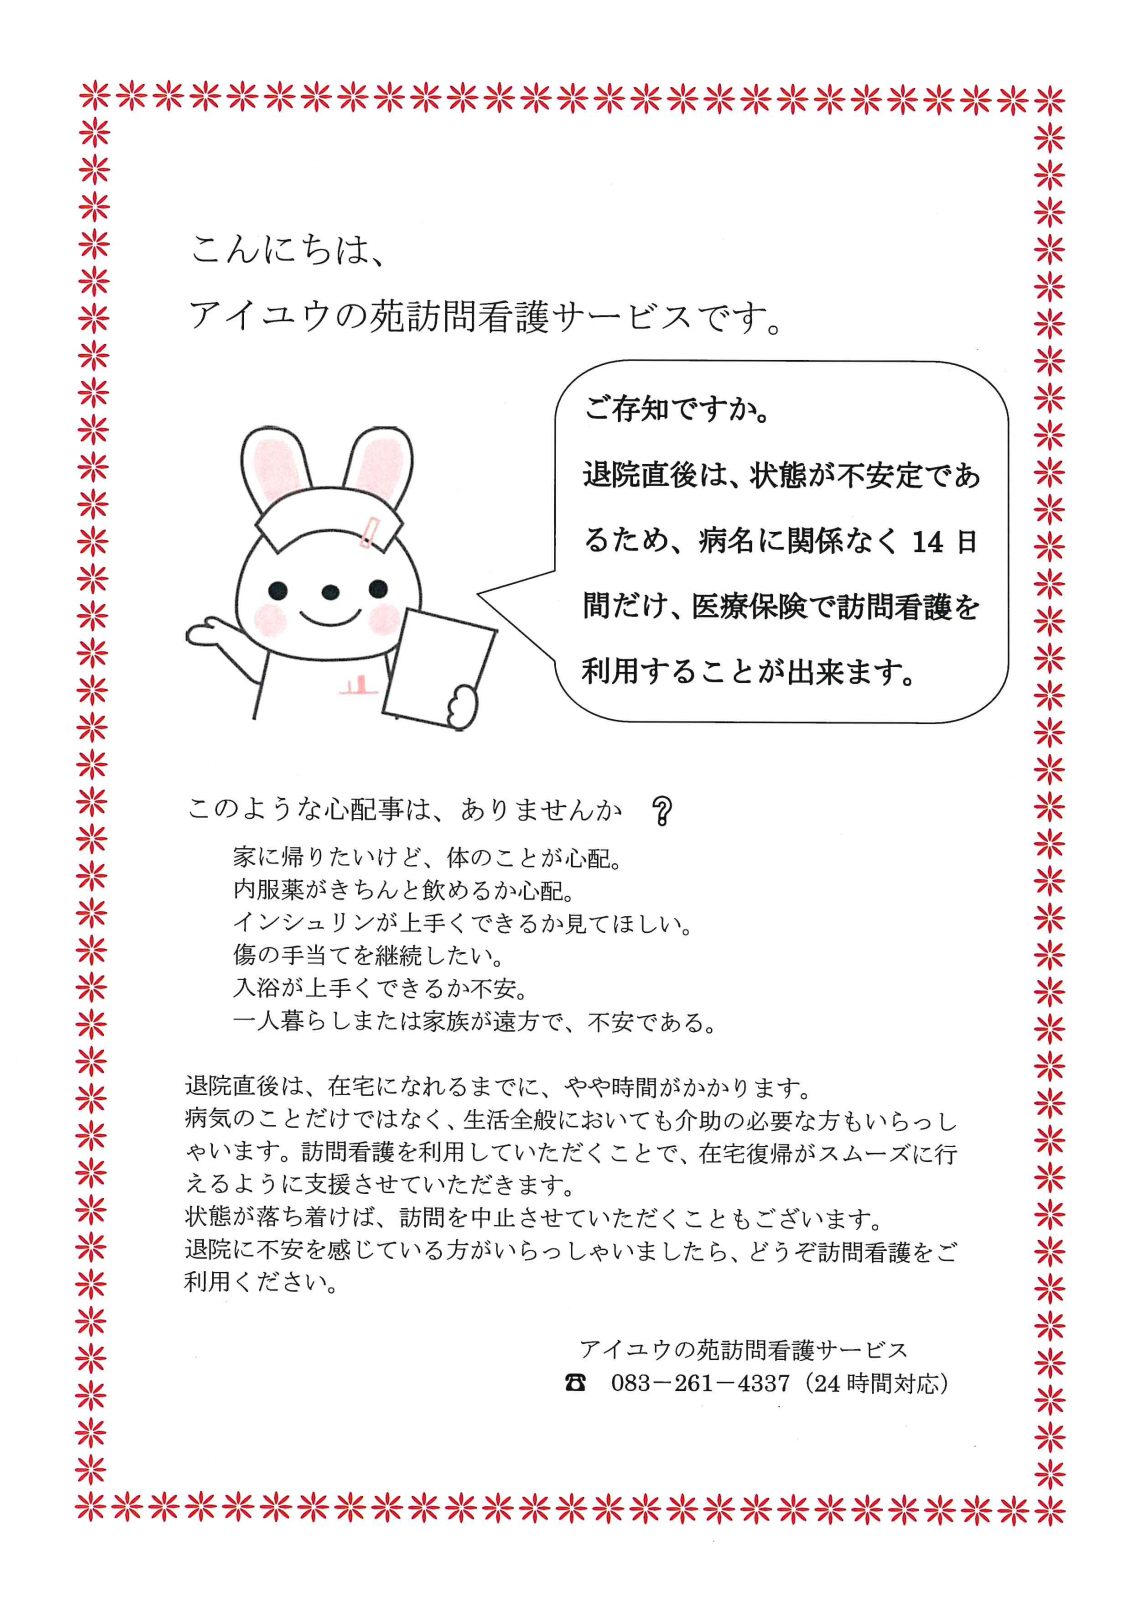 こんにちは、
アイユウの苑訪問看護サービスです。
ご存知ですか。
退院直後は、状態が不安定であ
るため、病名に関係なく 14 日
間だけ、医療保険で訪問看護を
利用することが出来ます。
このような心配事は、ありませんか ?
家に帰りたいけど、体のことが心配。
内服薬がきちんと飲めるか心配。
インシュリンが上手くできるか見てほしい。
傷の手当てを継続したい。
入浴が上手くできるか不安。
一人暮らしまたは家族が遠方で、不安である。
退院直後は、在宅になれるまでに、やや時間がかかります。
病気のことだけではなく、生活全般においても介助の必要な方もいらっし
ゃいます。訪問看護を利用していただくことで、在宅復帰がスムーズに行
えるように支援させていただきます。
状態が落ち着けば、訪問を中止させていただくこともございます。
退院に不安を感じている方がいらっしゃいましたら、どうぞ訪問看護をご
利用ください。
アイユウの苑訪問看護サービス
☎ 083－261－4337（24 時間対応）